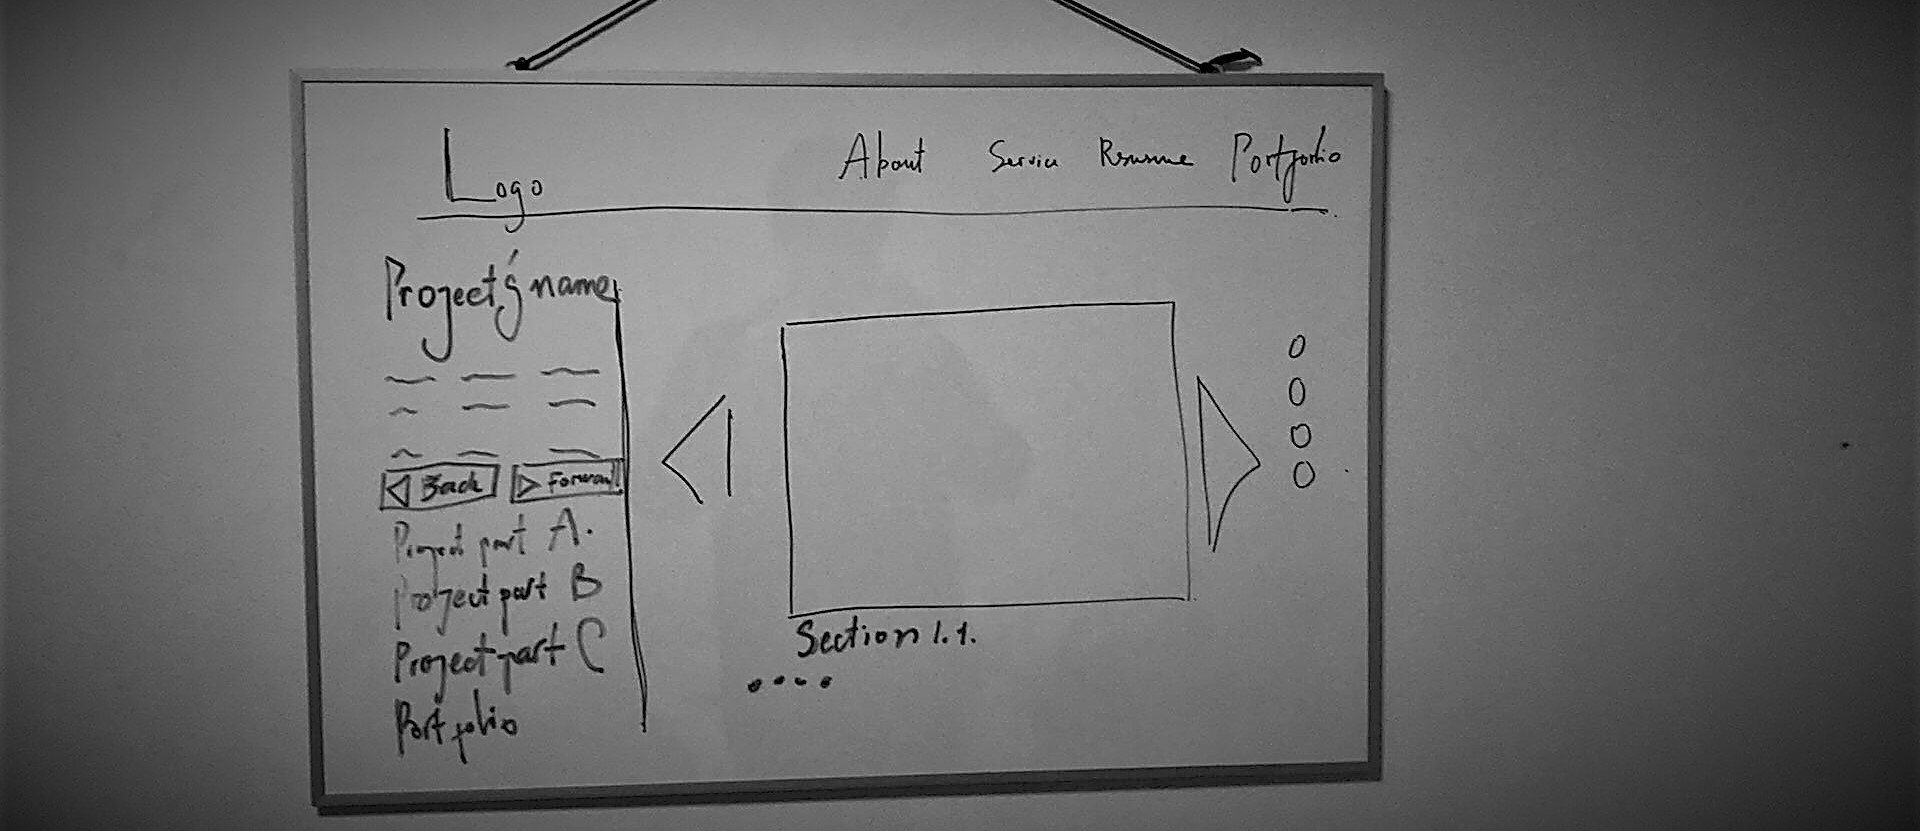 Logo
About Service Resume Portfolio
Project's name
Back Forward
Project part A.
Project part B
Project part C
Portfolio
Section 1.1.